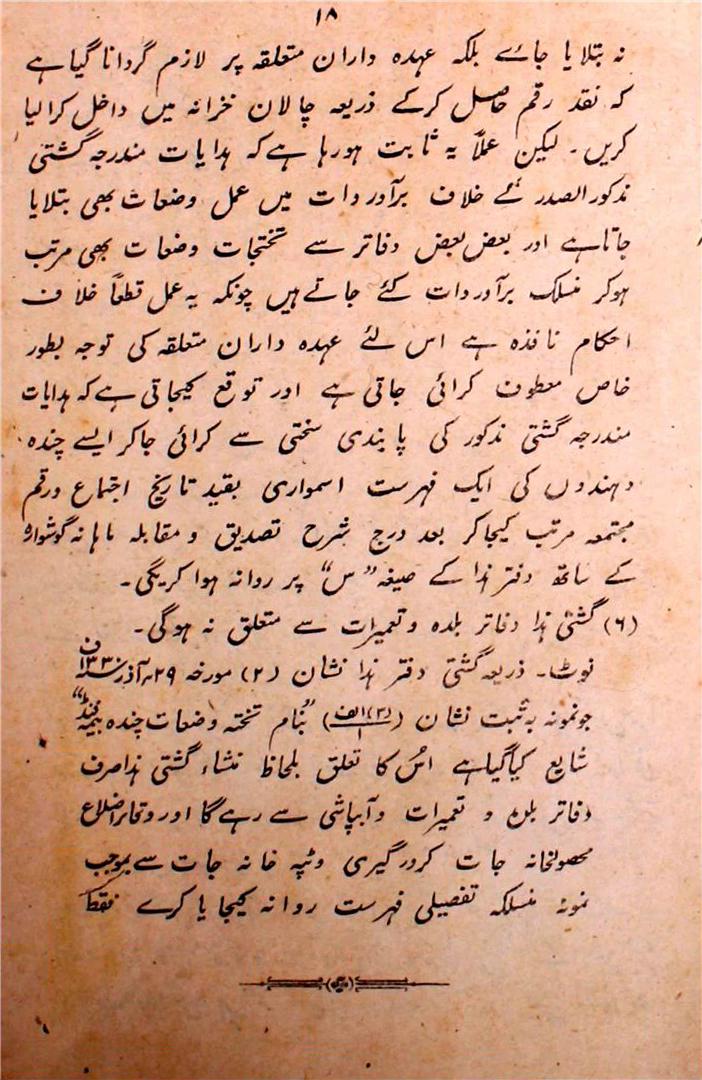 ۱۸
نہ بتلایا جاے بلکہ عہدہ داران متعلقہ پر لازم گردانا گیا ہے
کہ نقد رقم حاصل کرکے ذریعہ چالان خزانہ میں داخل کرالیا
کریں۔ لیکن عملاً یہ ثابت ہورہا ہے کہ ہدایات مندرجہ گشتی
مذکور الصدر کے خلاف برآوردات میں عمل وضعات بھی بتلایا
جاتا ہے اور بعض بعض دفاتر سے تختجات وضعات بھی مرتب
ہوکر منسلک برآوردات کئے جاتے ہیں چونکہ یہ عمل قطعاً خلاف
احکام نافذہ ہے اس لئے عہدہ داران متعلقہ کی توجہ بطور
خاص معطوف کرائی جاتی ہے اور توقع کیجاتی ہے کہ ہدایات
مندرجہ گشتی مذکور کی پابندی سختی سے کرائی جاکر ایسے چندہ
دہندوں کی ایک فہرست اسمواری بقید تاریخ اجتماع ورقم
مجتمعہ مرتب کیجاکر بعد درج شرح تصدیق و مقابلہ ماہانہ گوشوارہ
کے ساتھ دفتر ہذا کے صیغہ "س" پر روانہ ہوا کریگی۔
(۶) گشتی ہذا دفاتر بلدہ وتعمیرات سے متعلق نہ ہوگی۔
نوٹ۔ ذریعہ گشتی دفتر ہذا نشان (۲) مورخہ ۲۹ آذر ۱۳۳۰ ف
جو نمونہ بہ ثبت نشان "بنام تختہ وضعات چندہ بیمہ فنڈ"
شایع کیا گیا ہے اُس کا تعلق بلحاظ منشاء گشتی ہذا صرف
دفاتر بلدہ و تعمیرات وآبپاشی سے رہے گا اور دفاتر اضلاع
محصولخانہ جات کرورگیری وٹپہ خانہ جات سے بموجب
نمونہ منسلکہ تفصیلی فہرست روانہ کیجایا کرے فقط